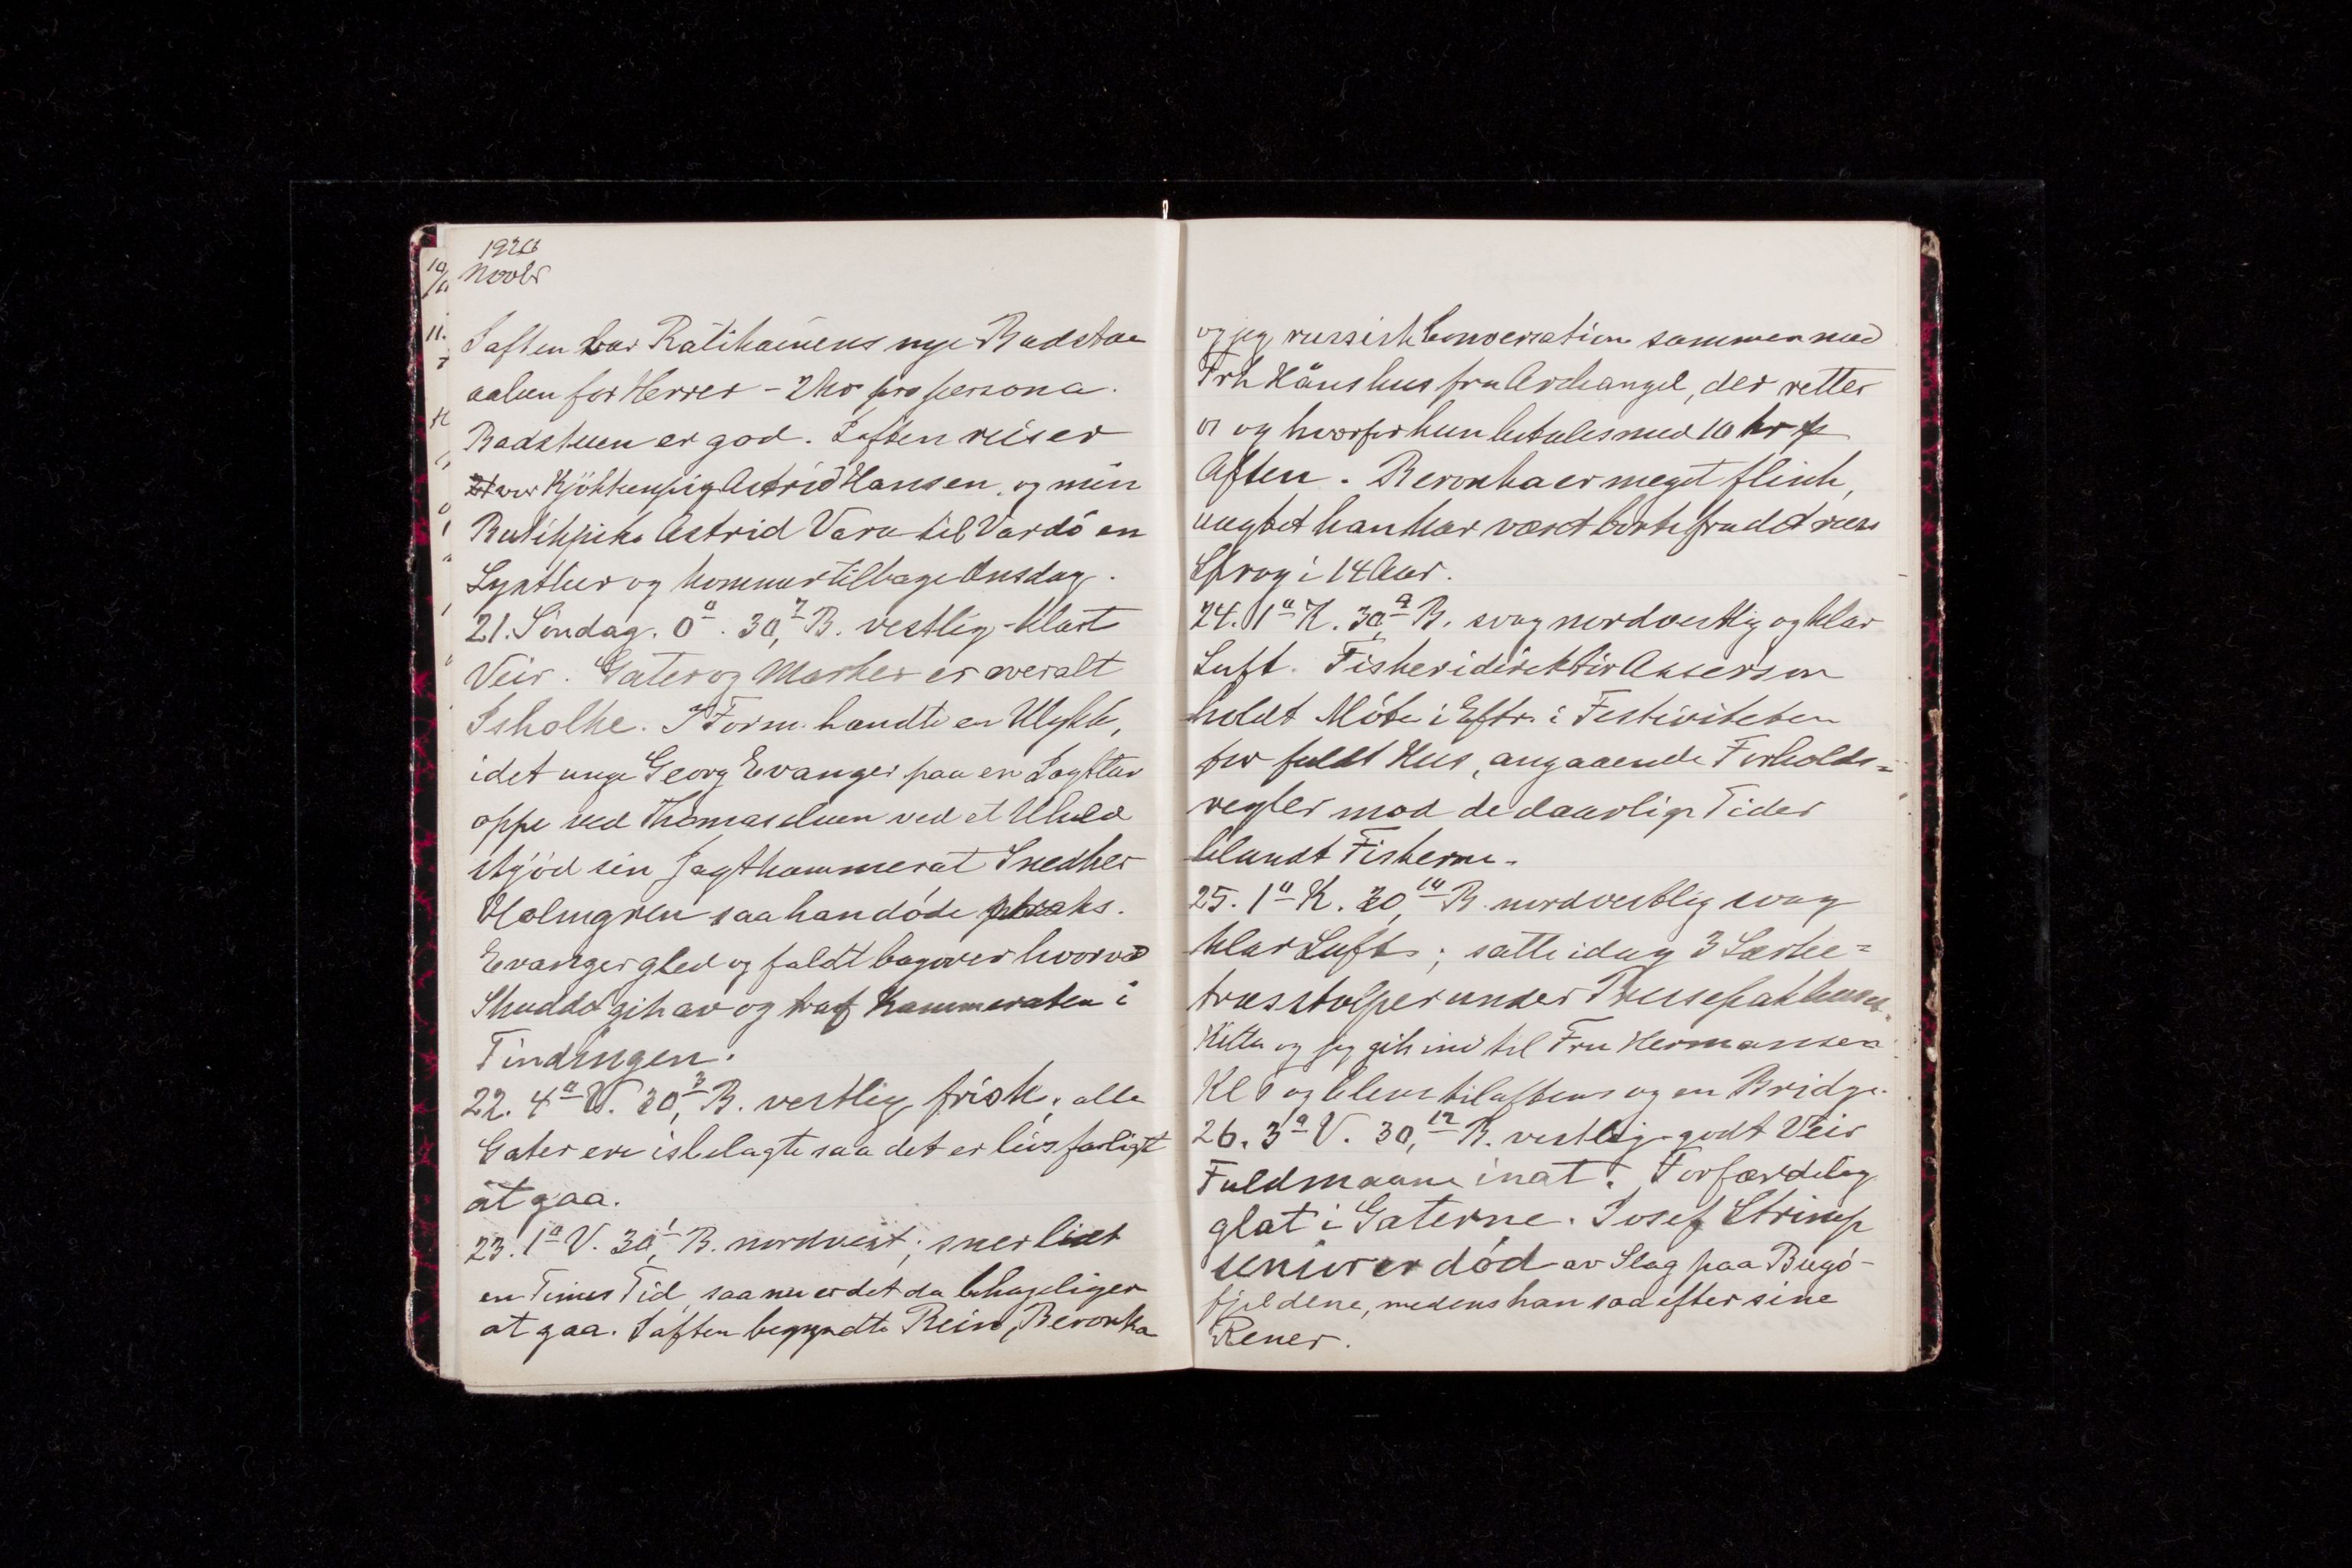 1926
Novbr
Iaften var Ratihainens nye Badstue
aaben for Herrer - 2 kr pro persona.
Badstuen er god. Iaften reiser
vor Kjökkenpig Astrid Hansen og min
Butikpike Astrid Vara til Vardö en
Lysttur og kommer tilbage Onsdag.
21. Söndag. 0° . 30,7 B. vestlig - klart
Veir. Gater og Marker er overalt
Isholke. I Form. hændte en Ulykke,
idet unge Georg Evanger paa en Jagttur
oppe ved Thomaselven ved et Uheld
skjöd sin Jagtkammerat Snedker
Holmgren saa han döde straks.
Evanger gled og faldt bagover hvorved
Skuddet gik av og traf Kammeraten i
Tindingen.
22. 4° V. 30,3 B. vestlig frisk; alle
Gater ere isbelagte saa det er livsfarligt
at gaa.
23. 1° V. 30,1 B. nordvest; sner lidt
en Times Tid saa nu er det da behageliger
at gaa. Iaften begyndte Rein, Beronka
og jeg russisk Conversation sammen med
Frk Hänshus fra Archangel, der retter
os og hvorfor hun betales med 10 kr p
Aften. Beronka er meget flink,
uagtet han har været borte fra det russ
Sprog i 14 Aar.
24. 1° K. 30,9 B. svag nordvestlig og klar
Luft. Fiskeridirektör Asserson
holdt Möte i Eftr. i Festiviteten
for fuldt Hus, angaaende Forholds=
regler mod de daarlige Tider
blandt Fiskerne.
25. 1° K. 30,10 B. nordvestlig svag
klar Luft; satte idag 3 Lærke=
træsstolper under Russepakhuset.
Kitta og jeg gik ind til Fru Hermansen
Kl 8 og blev tilaftens og en Bridge.
26. 3° V. 30,12 B. vestlig godt Veir
Fuldmaane inat. Forfærdelig
glat i Gaterne. Josef Strimp
senior er död av Slag paa Bugö-
fjeldene, medens han saa efter sine
Rener.